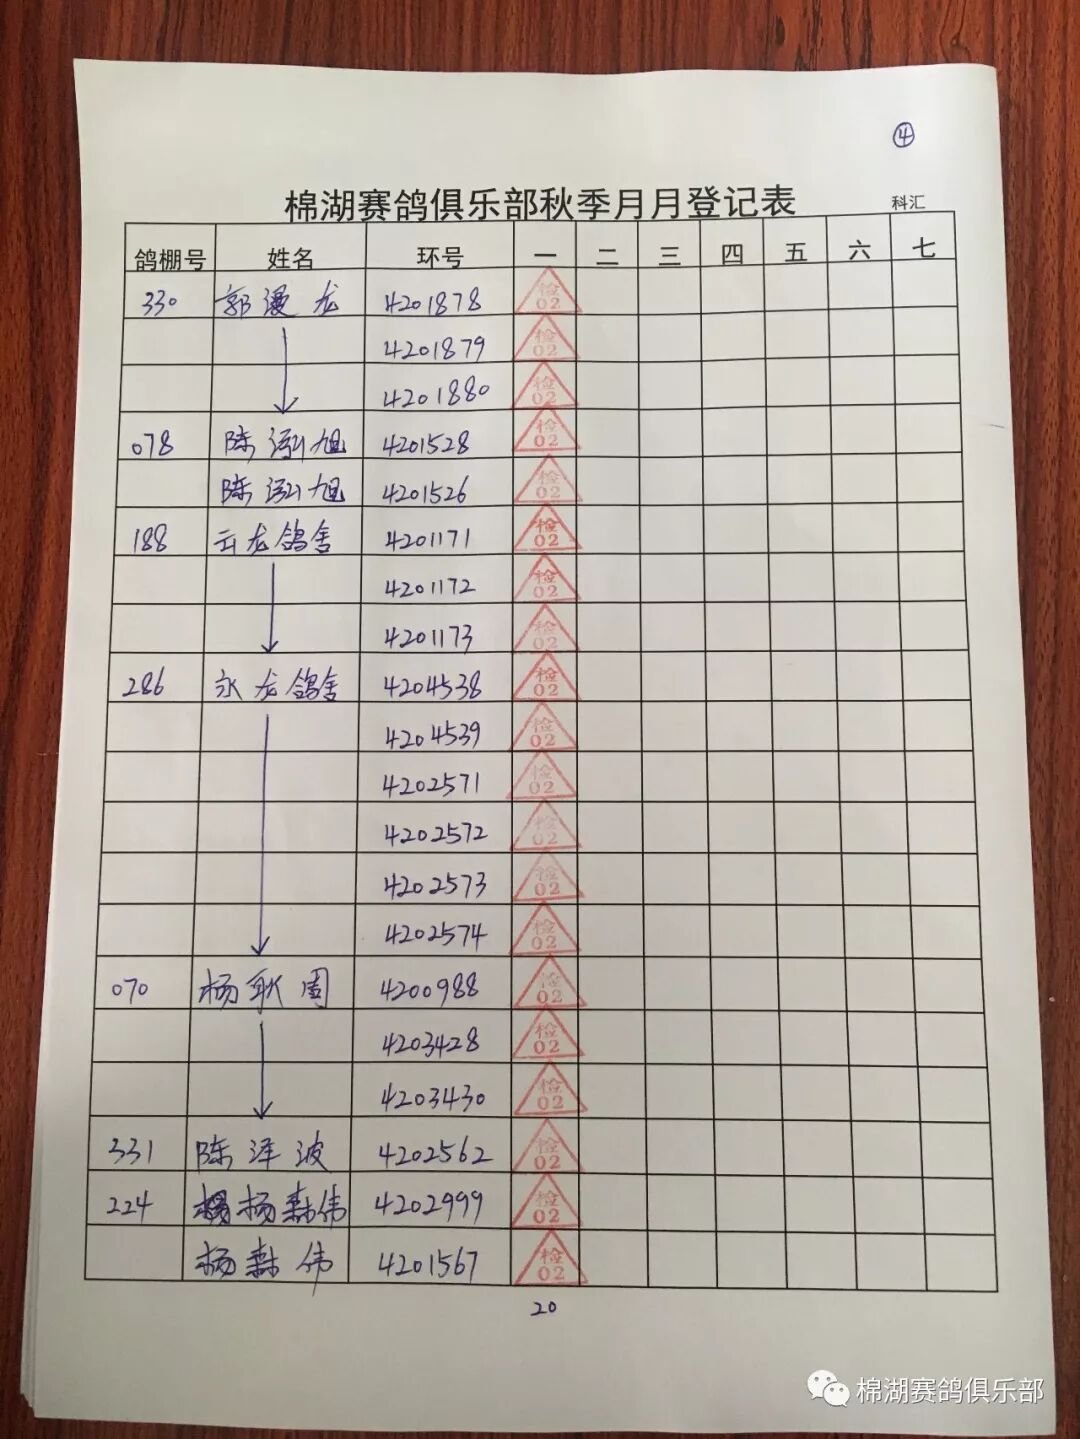 ④
棉湖赛鸽俱乐部秋季月月登记表 科汇
鸽棚号 姓名 环号 一 二 三 四 五 六 七
330 郭漫龙 4201878 检02
4201879 检02
4201880 检02
078 陈 旭 4201528 检02
陈 旭 4201526 检02
188 云龙鸽舍 4201171 检02
4201172 检02
4201173 检02
286 永龙鸽舍 4204538 检02
4204539 检02
4202571 检02
4202572 检02
4202573 检02
4202574 检02
070 杨耿周 4200988 检02
4203428 检02
4203430 检02
331 陈泽波 4202562 检02
224 杨森伟 4202999 检02
杨森伟 4201567 检02
20
棉湖赛鸽俱乐部